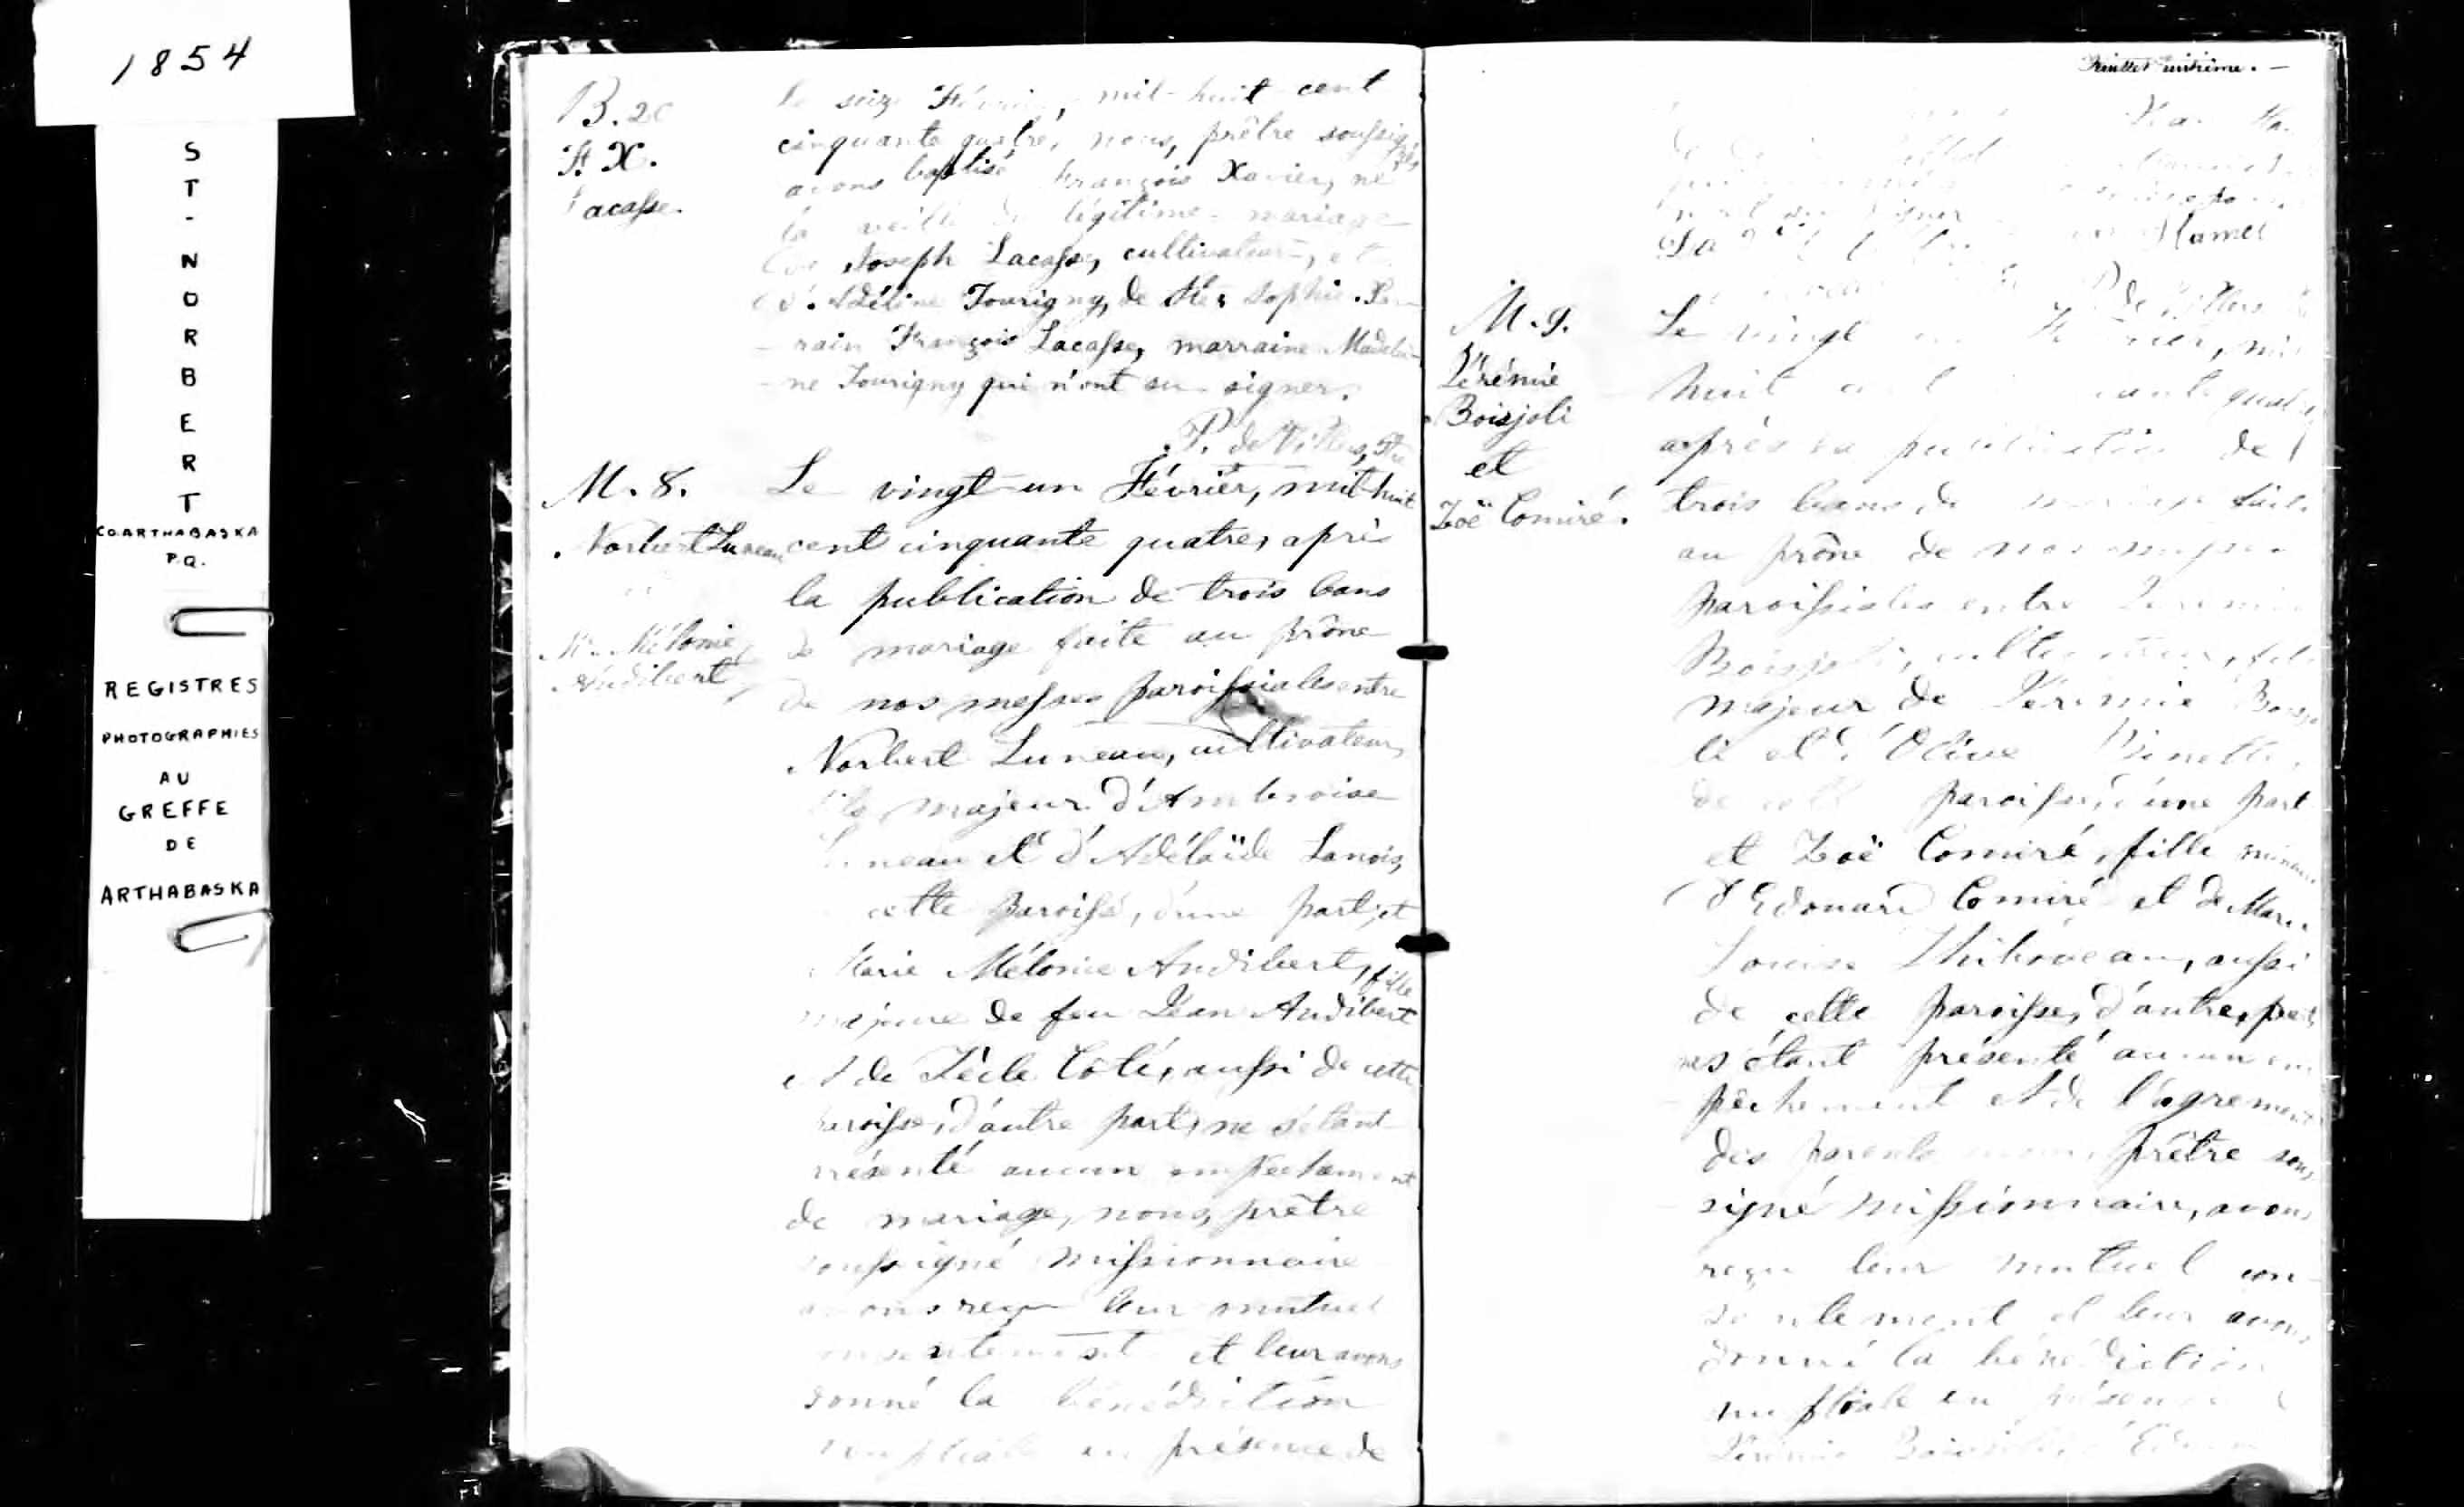 1854
ST-NORBERT
CO. ARTHABASKA
P.Q.
REGISTRES
PHOTOGRAPHIES
AU
GREFFE
DE
ARTHABASKA
B.20
F. X.
Lacasse.
Le seize Février, mil-huit cent
cinquante quatre, nous, prêtre soussigné,
avons baptisé François Xavier, né
la veille du légitime mariage
de Joseph Lacasse, cultivateur, et
d'Adéline Tourigny, de Ste Sophie. Par-
-rain François Lacasse, marraine Madelei-
-ne Tourigny qui n'ont su signer.
P. de Villers, Ptre
M. 8.
Norbert Luneau
M. Mélonie
Audibert
Le vingt-un Février, mil-huit
cent cinquante quatre, après
la publication de trois bans
de mariage faite au prône
de nos messes paroissiales entre
Norbert Luneau, cultivateur,
fils majeur d'Ambroise
Luneau et d'Adélaïde Lanois,
cette paroisse, d'une part, et
Marie Mélonie Audibert, fille
majeure de feu Jean Audibert
et de Tècle Côté, aussi de cette
paroisse, d'autre part, ne s'étant
présenté aucun empêchement
de mariage, nous, prêtre
soussigné missionnaire
avons reçu leur mutuel
consentement et leur avons
donné la bénédiction
nuptiale en présence de
Feuillet
Hamel
P. de Villers
M. 9.
Jérémie
Boisjoli
et
Zoë Comiré.
Le vingt un Février, mil
huit cent quatre
après la publication de
trois bans de mariage faite
au prône de nos messes
paroissiales entre Jérémie
Boisjoli, cultivateur, fils
majeur de Jérémie Boisjo
li et d'Olive
de cette paroisse, d'une part
et Zoë Comiré, fille mineure
d'Edouard Comiré et de Marie
Louise Thibodeau, aussi
de cette paroisse, d'autre part,
ne s'étant présenté aucun em
pêchement et de l'agrément
des parents nous, prêtre sous
signé missionnaire, avons
reçu leur mutuel con-
sentement et leur avons
donné la bénédiction
nuptiale en présence
Jérémie Boisjoli